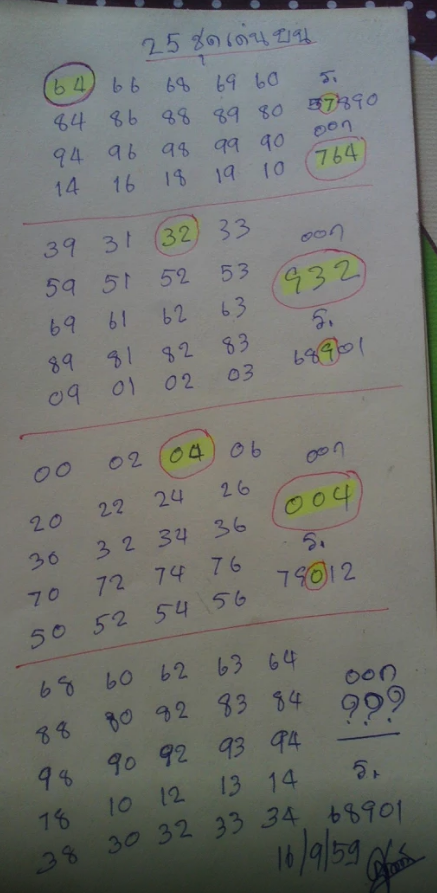 25 ชุดเด่นบน
64 66 68 69 60 ร.
84 86 88 89 80 57890
94 96 98 99 90 ออก
14 16 18 19 10 764
39 31 32 33 ออก
59 51 52 53 932
69 61 62 63 ร.
89 81 82 83 68901
09 01 02 03
00 02 04 06 ออก
20 22 24 26 004
30 32 34 36 ร.
70 72 74 76 79012
50 52 54 56
68 60 62 63 64 ออก
88 80 82 83 84 ???
98 90 92 93 94 ร.
18 10 12 13 14
38 30 32 33 34 68901
16/9/59